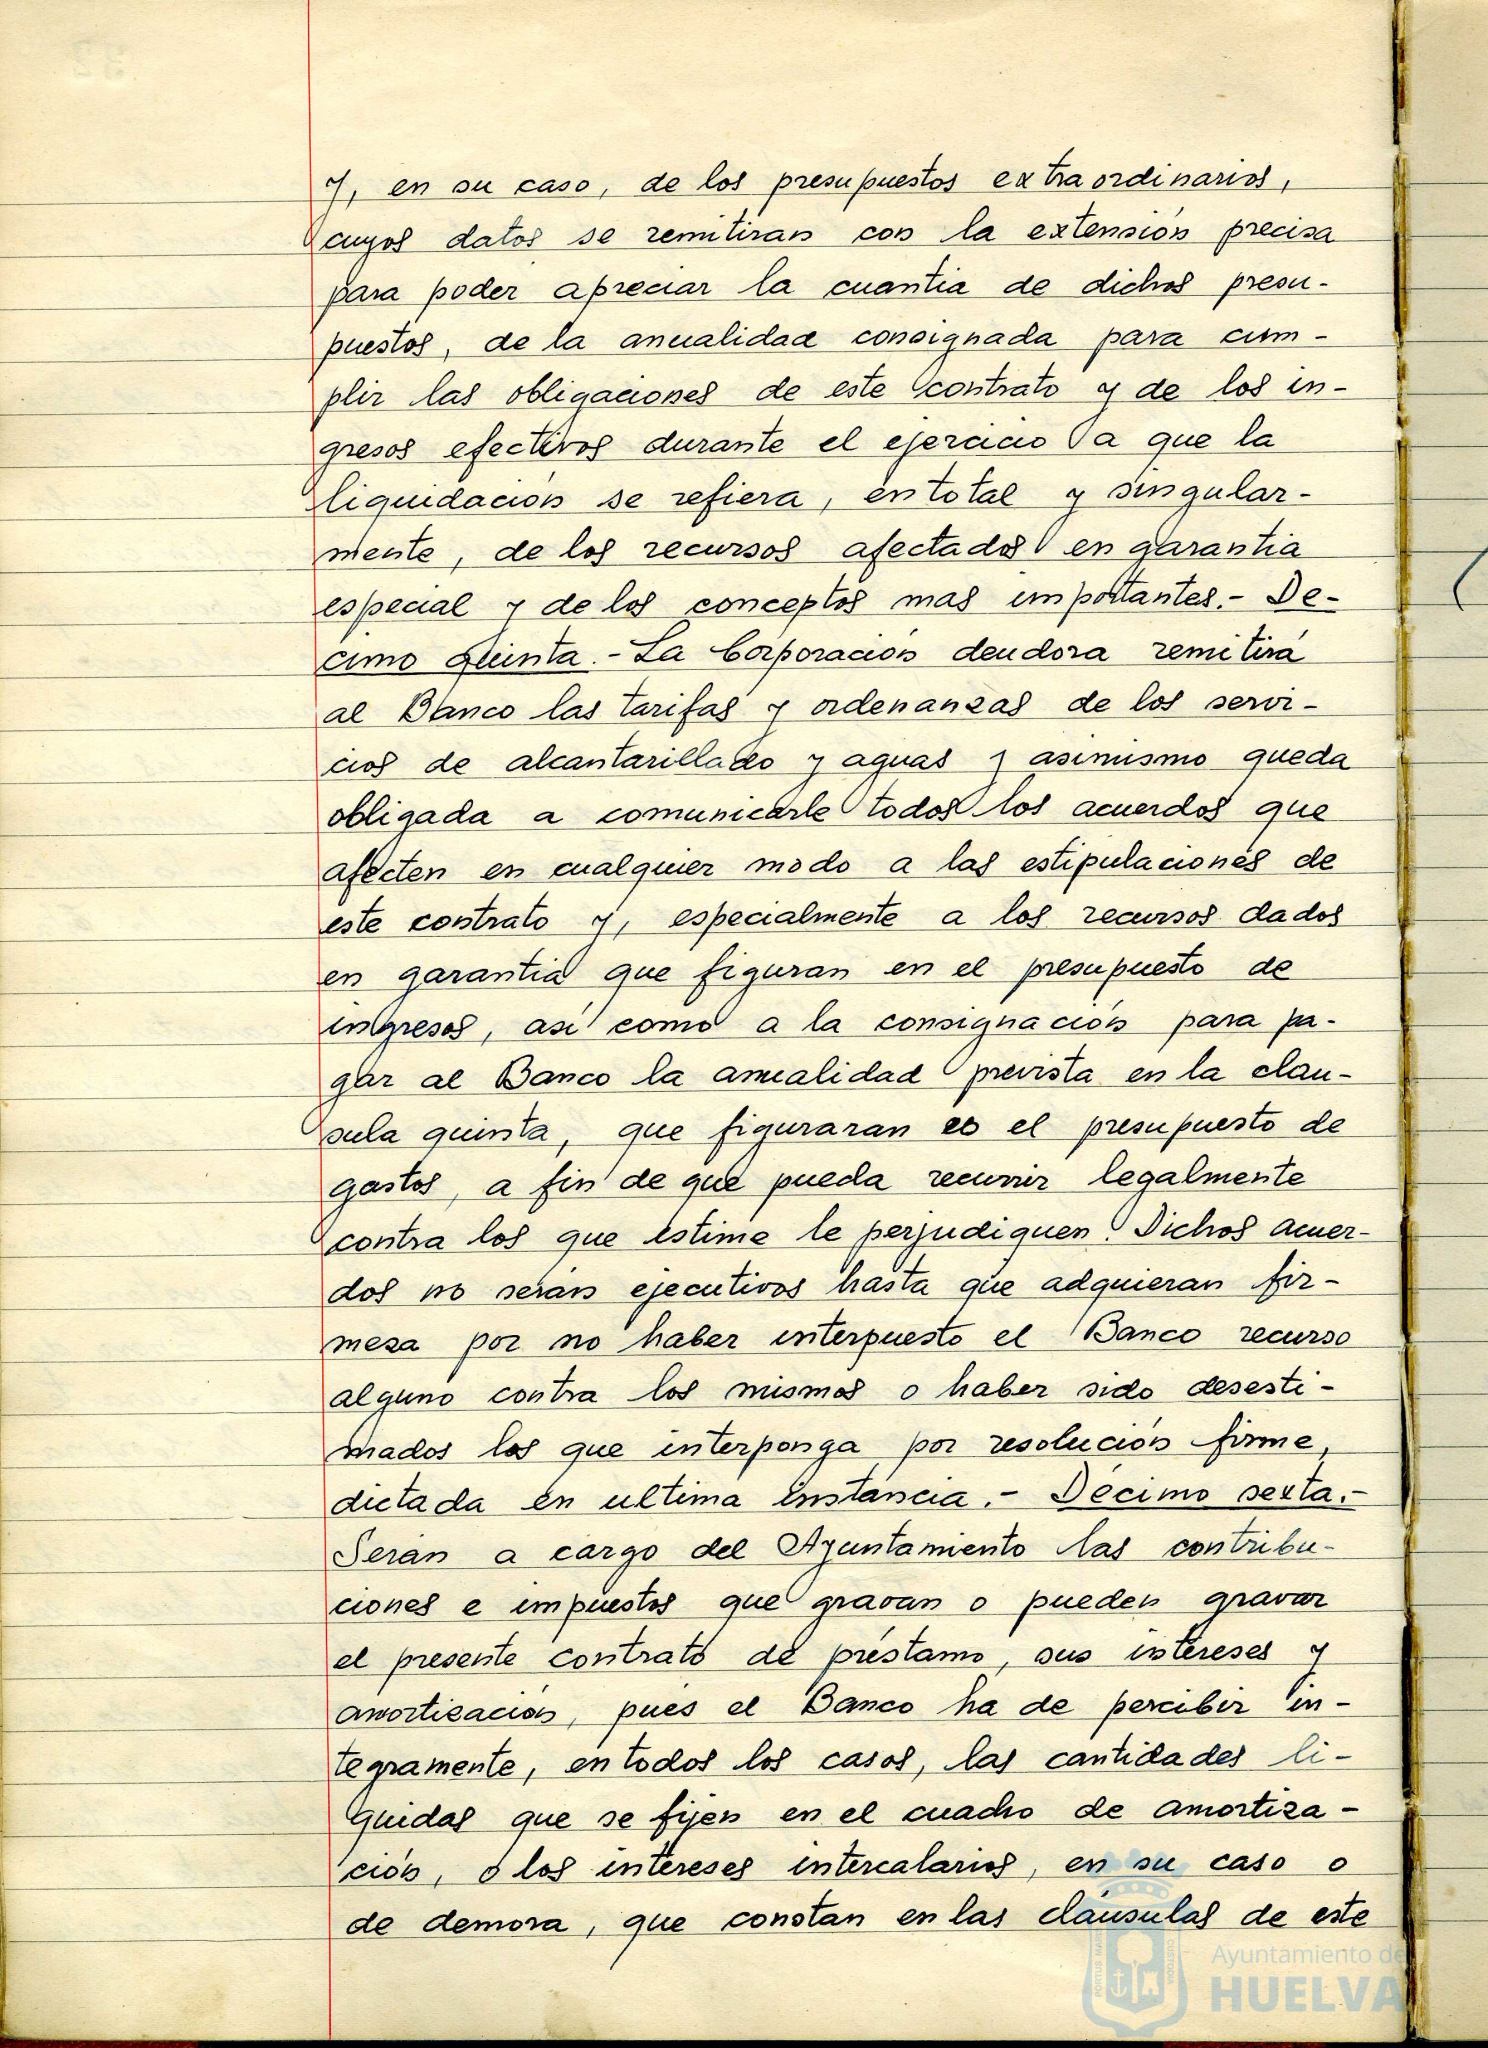 y, en su caso, de los presupuestos extraordinarios,
cuyos datos se remitiran con la extensión precisa
para poder apreciar la cuantia de dichos presu-
puestos, de la anualidad consignada para cum-
plir las obligaciones de este contrato y de los in-
gresos efectivos durante el ejercicio a que la
liquidación se refiera, en total y singular-
mente, de los recursos afectados en garantia
especial y de los conceptos mas importantes.- De-
cimo quinta.- La Corporación deudora remitirá
al Banco las tarifas y ordenanzas de los servi-
cios de alcantarillado y aguas y asimismo queda
obligada a comunicarle todos los acuerdos que
afecten en cualquier modo a las estipulaciones de
este contrato y, especialmente a los recursos dados
en garantia que figuran en el presupuesto de
ingresos, así como a la consignación para pa-
gar al Banco la anualidad prevista en la clau-
sula quinta, que figuraran en el presupuesto de
gastos, a fin de que pueda recurrir legalmente
contra los que estime le perjudiquen. Dichos acuer-
dos no serán ejecutivos hasta que adquieran fir-
meza por no haber interpuesto el Banco recurso
alguno contra los mismos o haber sido desesti-
mados los que interponga por resolución firme,
dictada en ultima instancia.- Décimo sexta.-
Seran a cargo del Ayuntamiento las contribu-
ciones e impuestos que gravan o pueden gravar
el presente contrato de préstamo, sus intereses y
amortización, pues el Banco ha de percibir in-
tegramente, en todos los casos, las cantidades li-
quidas que se fijen en el cuadro de amortiza-
ción, o los intereses intercalarios, en su caso o
de demora, que constan en las cláusulas de este
Ayuntamiento de
HUELVA